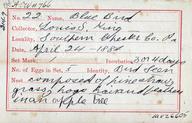 No. 22 Name, Blue Bird
Collector, Louis S. King
Locality, Southern Chester Co. Pa
Date, April 24 - 1884
Set Mark, 1 Incubation, 3 or 4 days
No. of Eggs in Set, 5 Identity, Bird Seen
Nest, composed of fine straw,
grass, hogs hair and feathers
in an apple tree